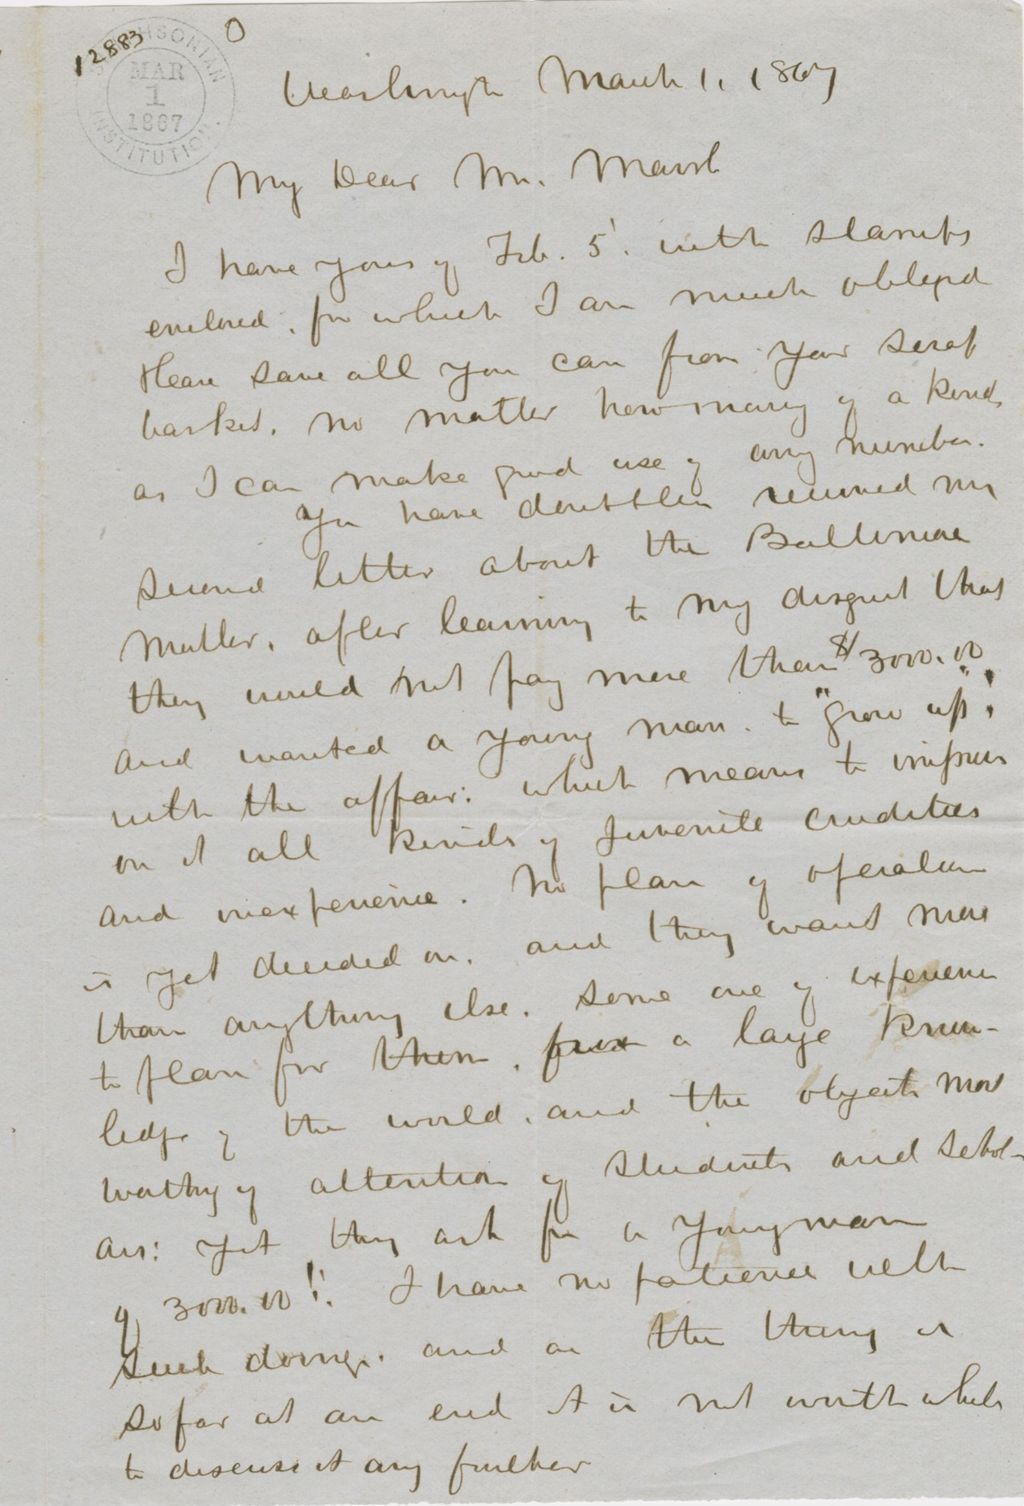 12883
SMITHSONIAN
MAR
1
1867
INSTITUTION.
Washingtn March 1, 1867
My Dear Mr. Marsh
I have yours of Feb. 5. with stamps
enclosed, for which I am much obliged
Please save all you can from your scrap
basket, no matter how many of a kind,
as I can make good use of any number.
You have doubtless received my
second letter about the Baltimore
matter, after learning to my disgust that
they would not pay more than $3000.00
and wanted a young man. to "grow up",
with the affair: which means to impress
on it all kinds of juvenile crudities
and inexperience. No plan of operation
is yet decided on, and they want more
than anything else, some one of experience
to plan for them, a large know-
ledge of the world, and the objects most
worthy of attention of students and schol-
ars: yet they ask for a young man
of 3000.00!! I have no patience with
such doings, and as the thing is
so far at an end it is not worth while
to discuss it any further